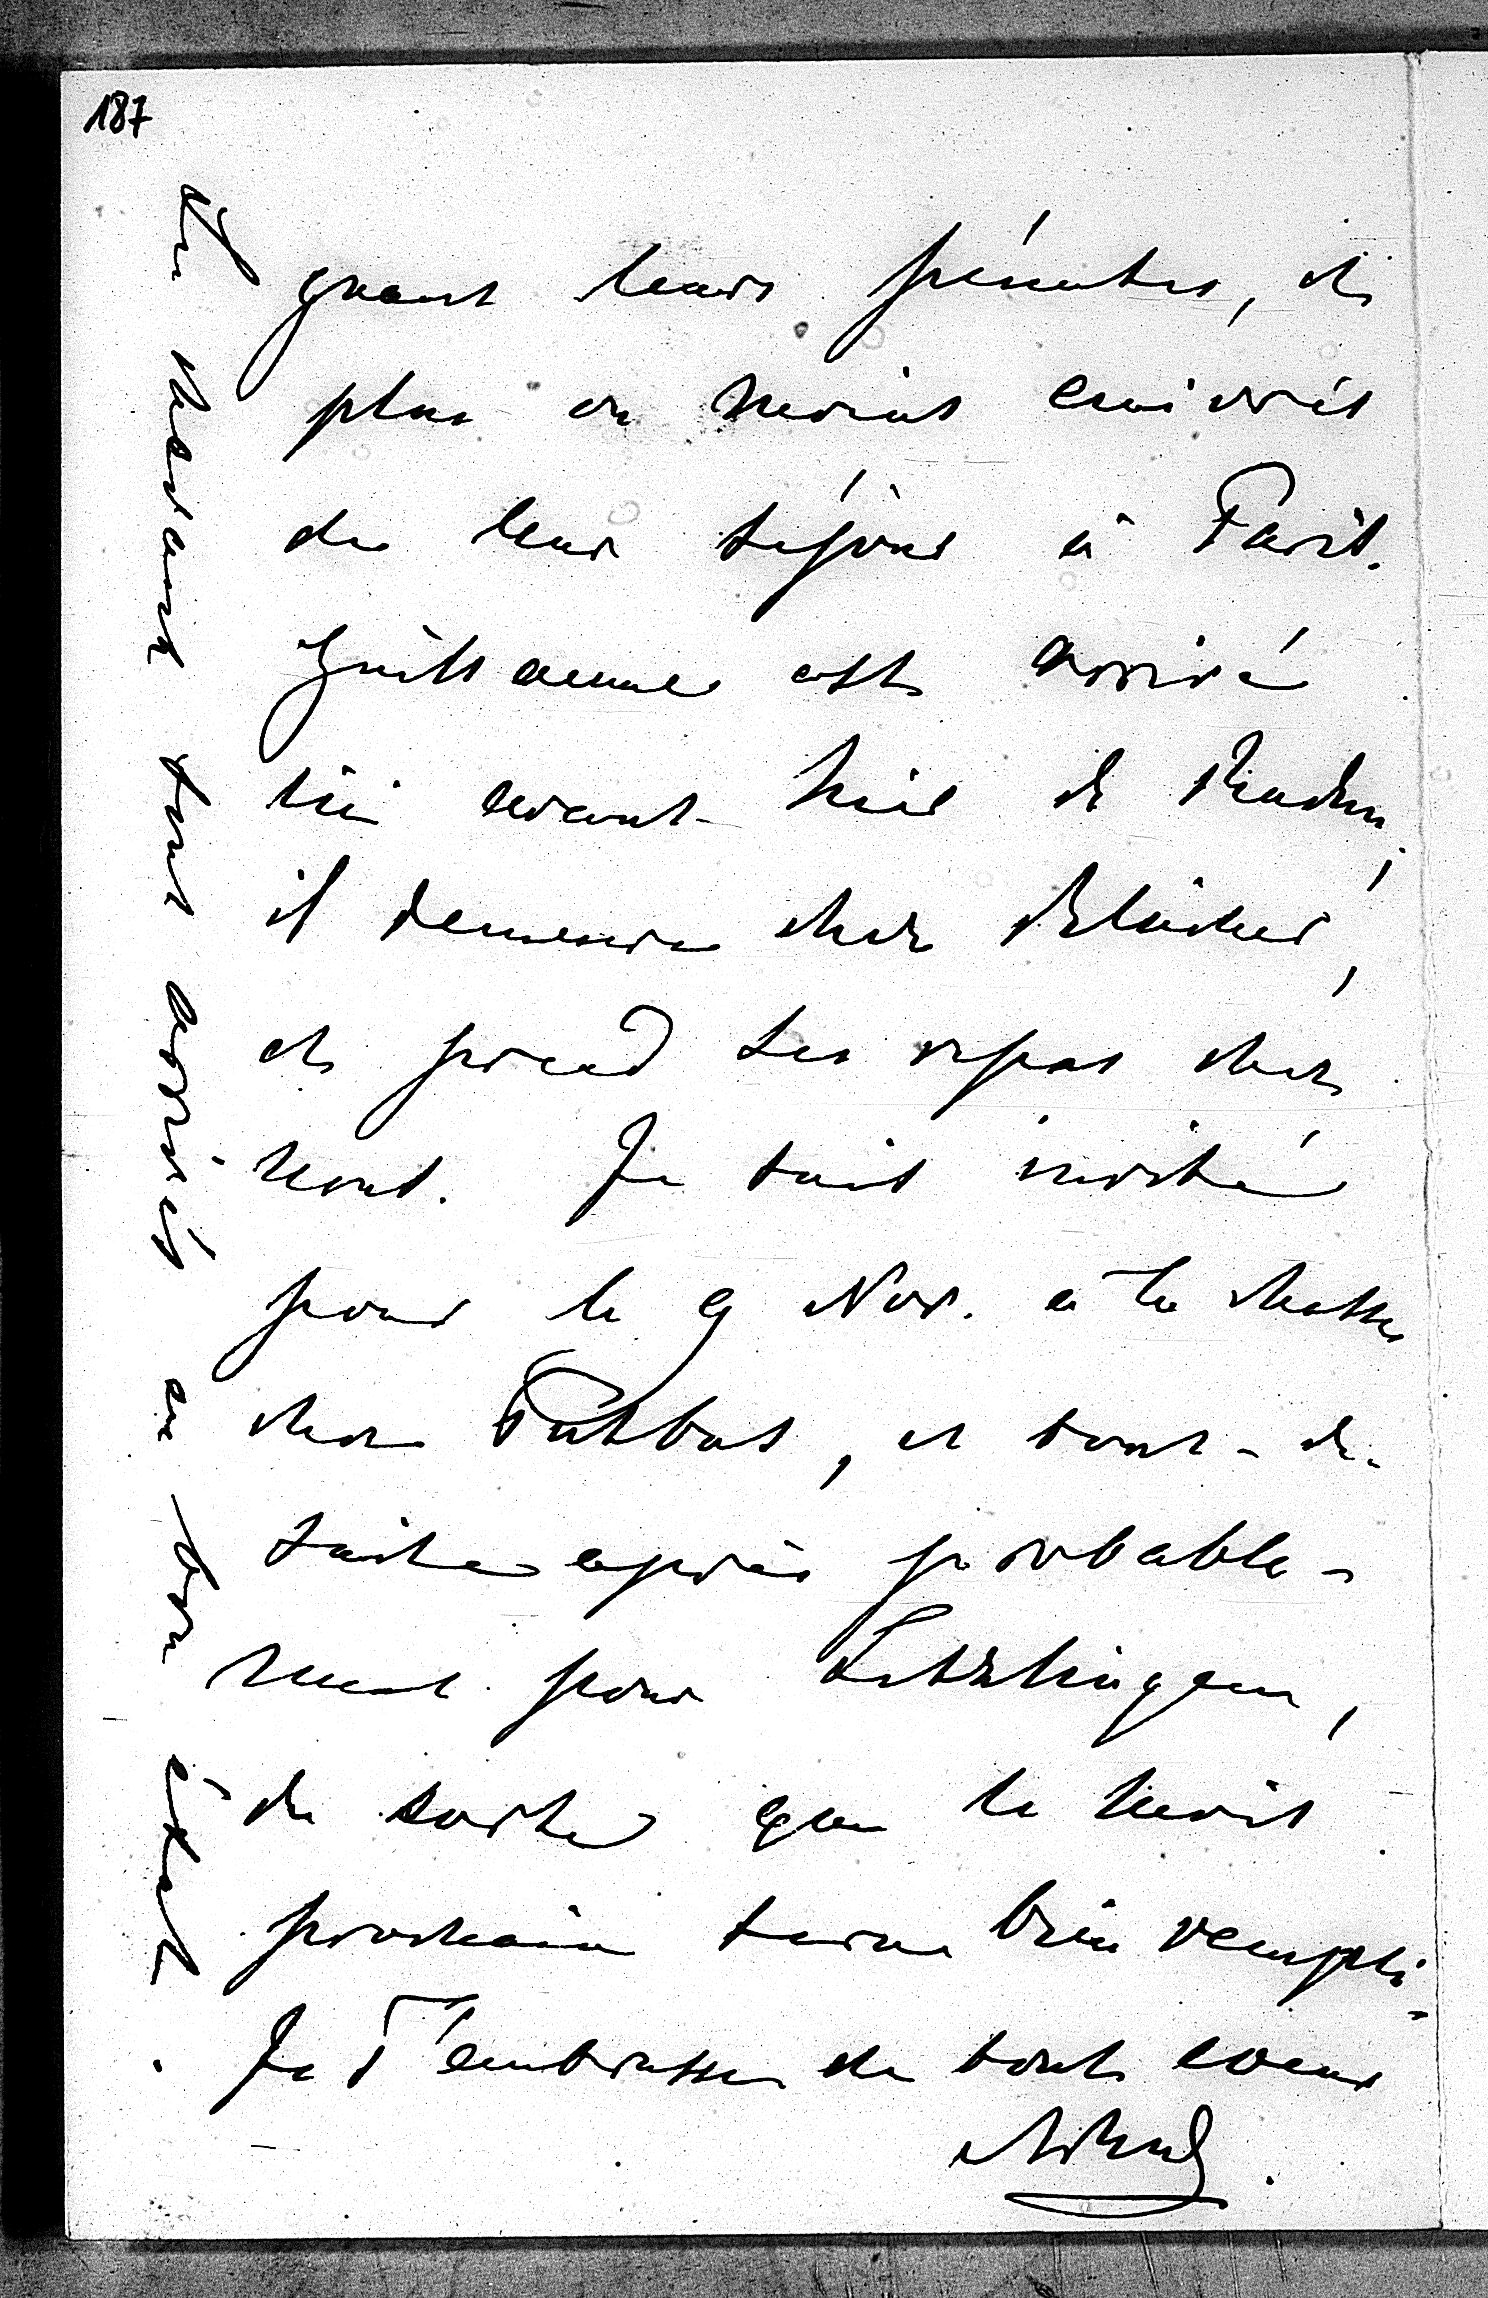 187
gnant leurs pénates, et
plus ou moins enivrés
de leur séjour à Paris.
Guillaume est arrivé
ici avant-hier de Baden,
il demeure chez Blücher,
et prend ses repas chez
nous. Je suis invité
pour le 9 Nov. à la chasse
chez Putbus, et tout-de-
suite après probable-
ment pour Letzlingen,
de sorte que le mois
prochain sera bien rempli.
Je T'embrasse de tout coeur
sont arrivés en bon état.